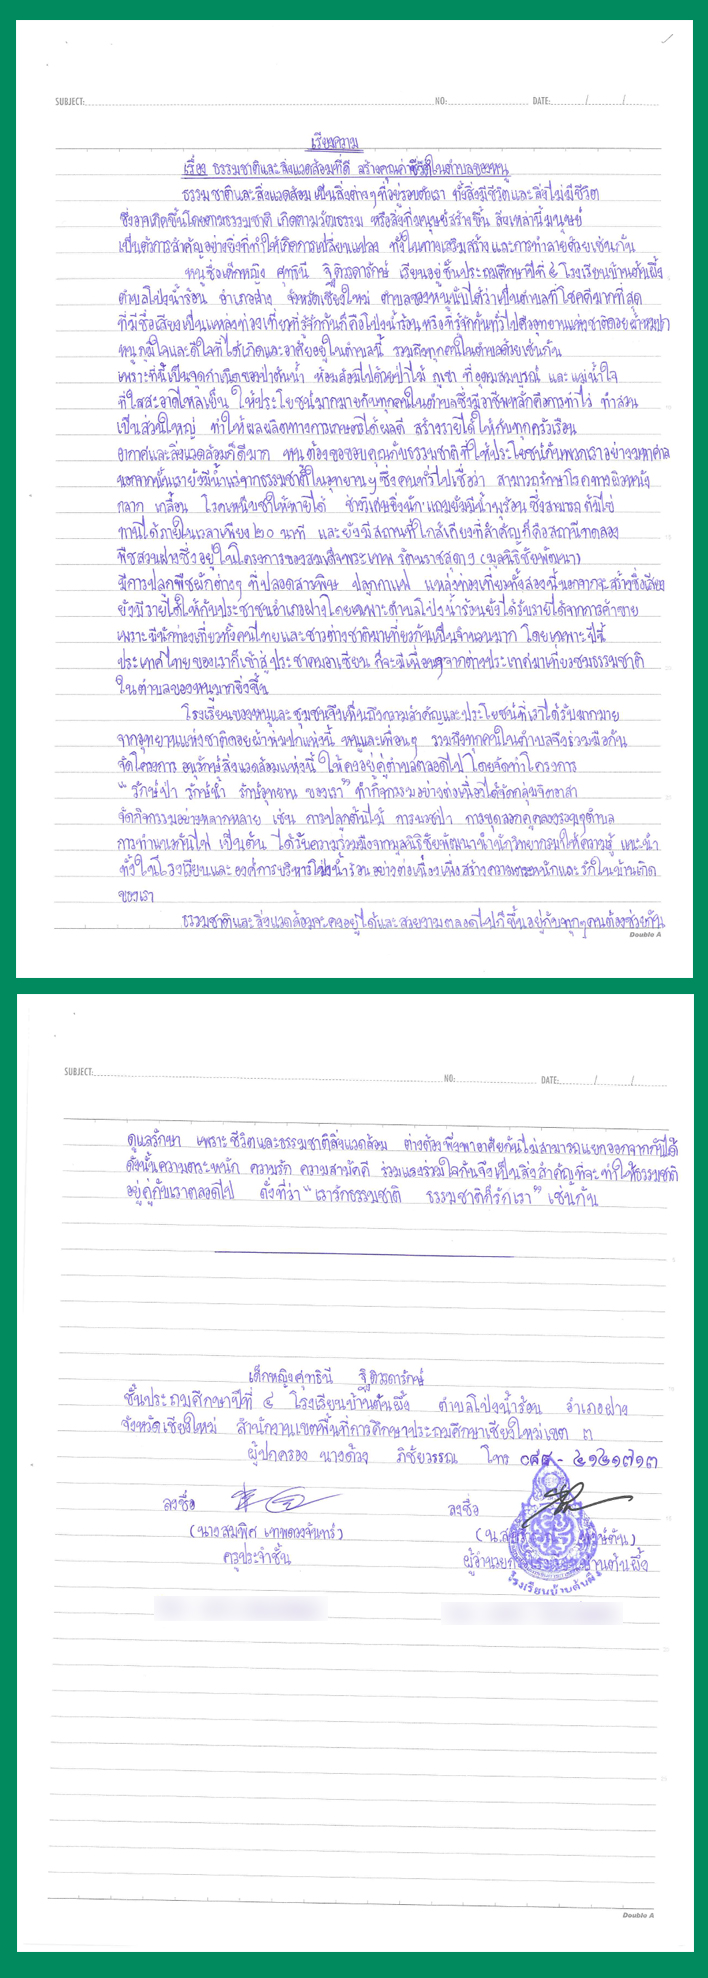 SUBJECT: NO: DATE: / /
เรียงความ
เรื่อง ธรรมชาติและสิ่งแวดล้อมที่ดี สร้างคุณค่าชีวิตในตำบลของหนู
ธรรมชาติและสิ่งแวดล้อม เป็นสิ่งต่างๆที่อยู่รอบตัวเรา ทั้งสิ่งมีชีวิตและสิ่งไม่มีชีวิต
ซึ่งอาจเกิดขึ้นโดยตามธรรมชาติ เกิดตามวัฒธรรม หรือสิ่งที่มนุษย์สร้างขึ้น สิ่งเหล่านี้มนุษย์
เป็นตัวการสำคัญอย่างยิ่งที่ทำให้เกิดการเปลี่ยนแปลง ทั้งในทางเสริมสร้าง และการทำลายด้วยเช่นกัน
หนูชื่อเด็กหญิง ศุทธินี ฐิติรดารักษ์ เรียนอยู่ชั้นประถมศึกษาปีที่ ๔ โรงเรียนบ้านต้นผึ้ง
ตำบลโป่งน้ำร้อน อำเภอฝาง จังหวัดเชียงใหม่ ตำบลของหนูนับได้ว่าเป็นตำบลที่โชคดีมากที่สุด
ที่มีชื่อเสียงเป็นแหล่งท่องเที่ยวที่รู้จักกันก็คือโป่งน้ำร้อน หรือที่รู้จักกันทั่วไปคืออุทยานแห่งชาติดอยผ้าห่มปก
หนูภูมิใจและดีใจที่ได้เกิดและอาศัยอยู่ในตำบลนี้ รวมถึงทุกคนในตำบลด้วยเช่นกัน
เพราะที่นี้เป็นจุดกำเนิดของป่าต้นน้ำ ห้อมล้อมไปด้วยป่าไม้ ภูเขา ที่อุดมสมบูรณ์ และแม่น้ำใจ
ที่ใสสะอาดไหลเย็น ให้ประโยชน์มากมายกับทุกคนในตำบลซึ่งมีอาชีพหลักคือการทำไร่ ทำสวน
เป็นส่วนใหญ่ ทำให้ผลผลิตทางการเกษตรได้ผลดี สร้างรายได้ให้กับทุกครัวเรือน
อากาศและสิ่งแวดล้อมก็ดีมาก หนูต้องขอขอบคุณกับธรรมชาติที่ให้ประโยชน์กับพวกเราอย่างมหาศาล
นอกจากนั้นเรายังมีน้ำแร่จากธรรมชาติในอุทยานฯ ซึ่งคนทั่วไปเชื่อว่า สามารถรักษาโรคทางผิวหนัง
กลาก เกลื้อน โรคเหน็บชาให้หายได้ ช่างวิเศษยิ่งนัก แถมยังมีน้ำพุร้อน ซึ่งสามารถ ต้มไข่
ทานได้ภายในเวลาเพียง ๒๐ นาที และยังมีสถานที่ใกล้เคียงที่สำคัญก็คือสถานีทดลอง
พืชสวนฝางซึ่งอยู่ในโครงการของสมเด็จพระเทพ รัตนราชสุดาฯ (มูลนิธิชัยพัฒนา)
มีการปลูกพืชผักต่างๆ ที่ปลอดสารพิษ ปลูกกาแฟ แหล่งท่องเที่ยวทั้งสองนี้นอกจากจะสร้างชื่อเสียง
ยังมีรายได้ให้กับประชาชนอำเภอฝางโดยเฉพาะตำบลโป่งน้ำร้อนยังได้รับรายได้จากการค้าขาย
เพราะมีนักท่องเที่ยวทั้งคนไทยและชาวต่างชาติมาเที่ยวกันเป็นจำนวนมาก โดยเฉพาะปีนี้
ประเทศไทยของเราก็เข้าสู่ประชาคมอาเซียน ก็จะมีเพื่อนๆจากต่างประเทศมาเที่ยวชมธรรมชาติ
ในตำบลของหนูมากยิ่งขึ้น
โรงเรียนของหนูและชุมชนจึงเห็นถึงความสำคัญและประโยชน์ที่เราได้รับมากมาย
จากอุทยานแห่งชาติดอยผ้าห่มปกแห่งนี้ หนูและเพื่อนๆ รวมถึงทุกคนในตำบลจึงร่วมมือกัน
จัดโครงการ อนุรักษ์สิ่งแวดล้อมแห่งนี้ ให้คงอยู่คู่ตำบลตลอดไป โดยจัดทำโครงการ
"รักษ์ป่า รักษ์น้ำ รักษ์อุทยาน ของเรา" ทำกิจกรรมอย่างต่อเนื่องได้จัดกลุ่มจิตอาสา
จัดกิจกรรมอย่างหลากหลาย เช่น การปลูกต้นไม้ การบวชป่า การขุดลอกคูคลองรอบๆตำบล
การทำแนวกันไฟ เป็นต้น ได้รับความร่วมมือจากมูลนิธิชัยพัฒนานำนักวิทยากรมาให้ความรู้ แนะนำ
ทั้งในโรงเรียนและองค์การบริหารโป่งน้ำร้อนอย่างต่อเนื่อง เพื่อสร้างความตระหนักและรักในบ้านเกิด
ของเรา
ธรรมชาติและสิ่งแวดล้อมจะคงอยู่ได้และสวยงามตลอดไปก็ขึ้นอยู่กับทุกๆคนต้องช่วยกัน
Double A
SUBJECT: NO: DATE: / /
ดูแลรักษา เพราะชีวิตและธรรมชาติสิ่งแวดล้อม ต่างต้องพึ่งพาอาศัยกันไม่สามารถแยกออกจากกันได้
ดังนั้นความตระหนัก ความรัก ความสามัคคี ร่วมแรงร่วมใจกันจึงเป็นสิ่งสำคัญที่จะทำให้ธรรมชาติ
อยู่คู่กับเราตลอดไป ดั่งที่ว่า "เรารักธรรมชาติ ธรรมชาติก็รักเรา" เช่นกัน
เด็กหญิงศุทธินี ฐิติรดารักษ์
ชั้นประถมศึกษาปีที่ ๔ โรงเรียนบ้านต้นผึ้ง ตำบลโป่งน้ำร้อน อำเภอฝาง
จังหวัดเชียงใหม่ สำนักงานเขตพื้นที่การศึกษาประถมศึกษาเชียงใหม่เขต ๓
ผู้ปกครอง นางด้วง ภิชัยวรรณ โทร ๐๘๘-๔๑๔๑๗๑๓
ลงชื่อ ลงชื่อ
(นางสมพิศ เทพดวงจันทร์)
ครูประจำชั้น ผู้อำนวยการโรงเรียนบ้านต้นผึ้ง
โรงเรียนบ้านต้นผึ้ง
Double A